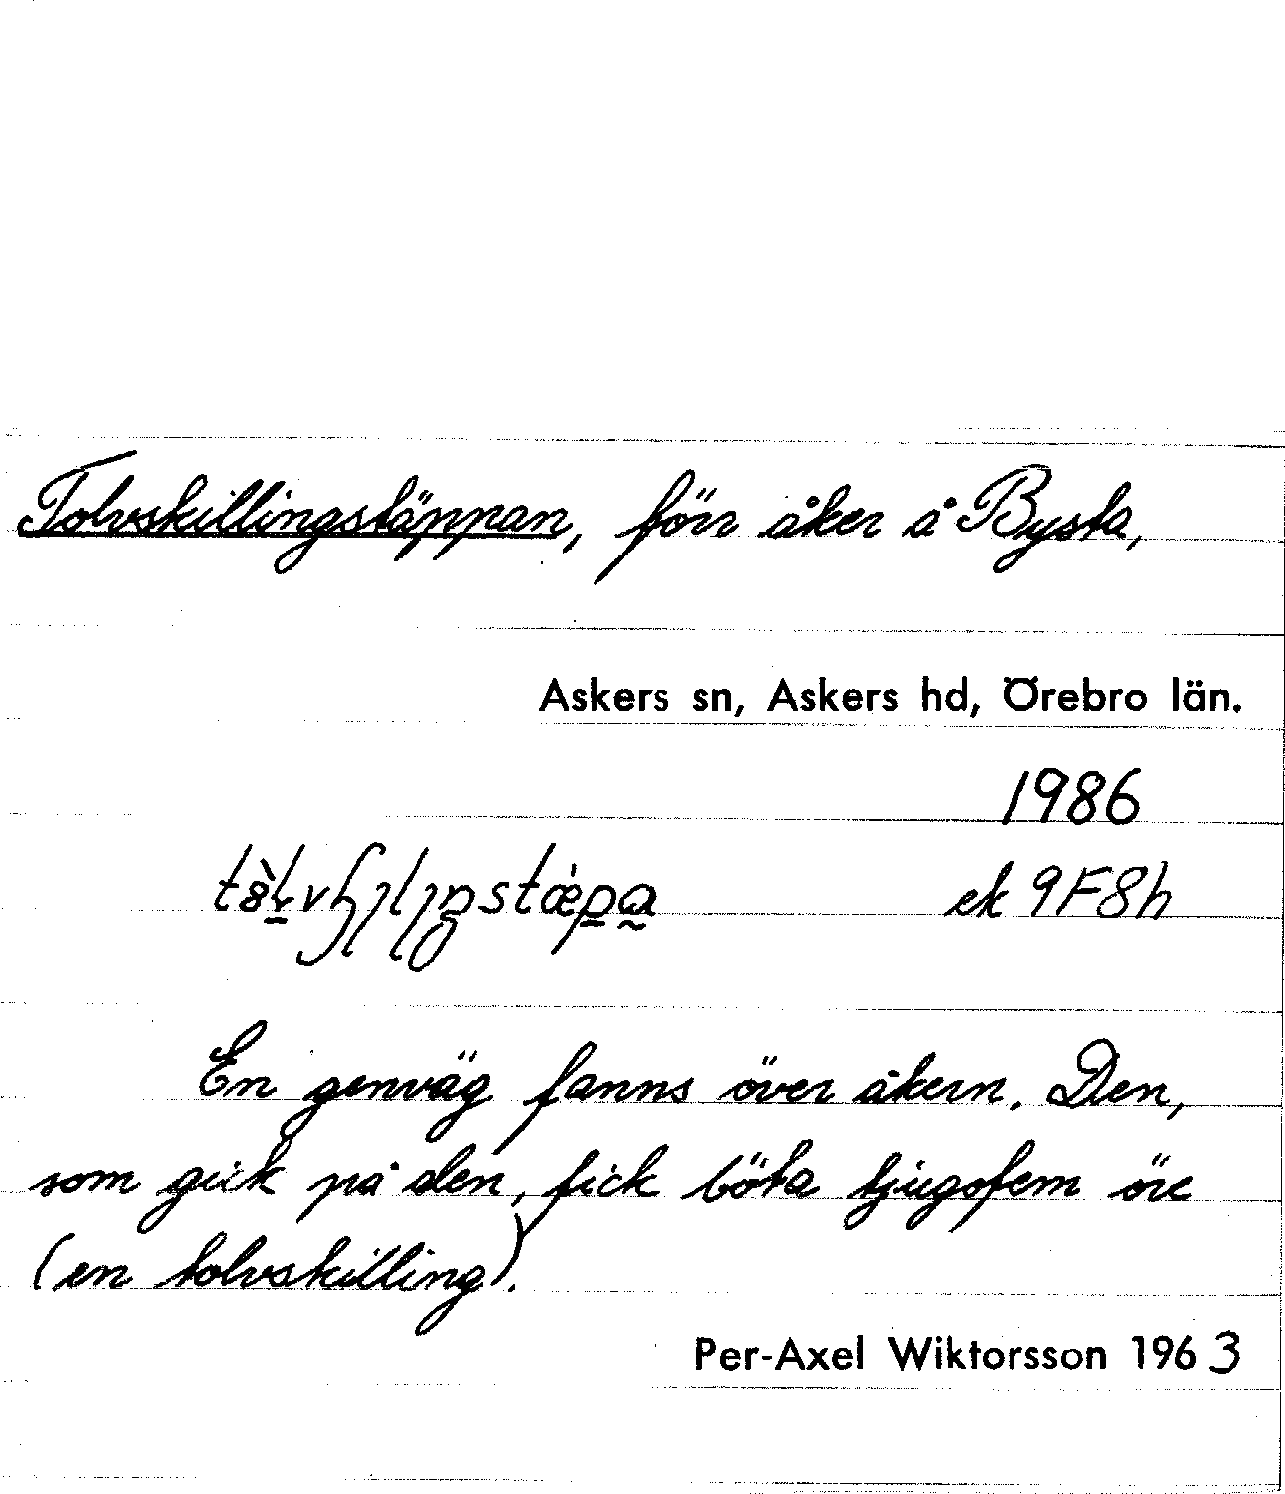 Tolvskillingstäppan, förr åker å Bysta,
Askers sn, Askers hd, Örebro län.
1986
ek 9F8h
En genväg fanns över åkern. Den,
som gick på den, fick böta tjugofem öre
(en tolvskilling).
Per-Axel Wiktorsson 1963